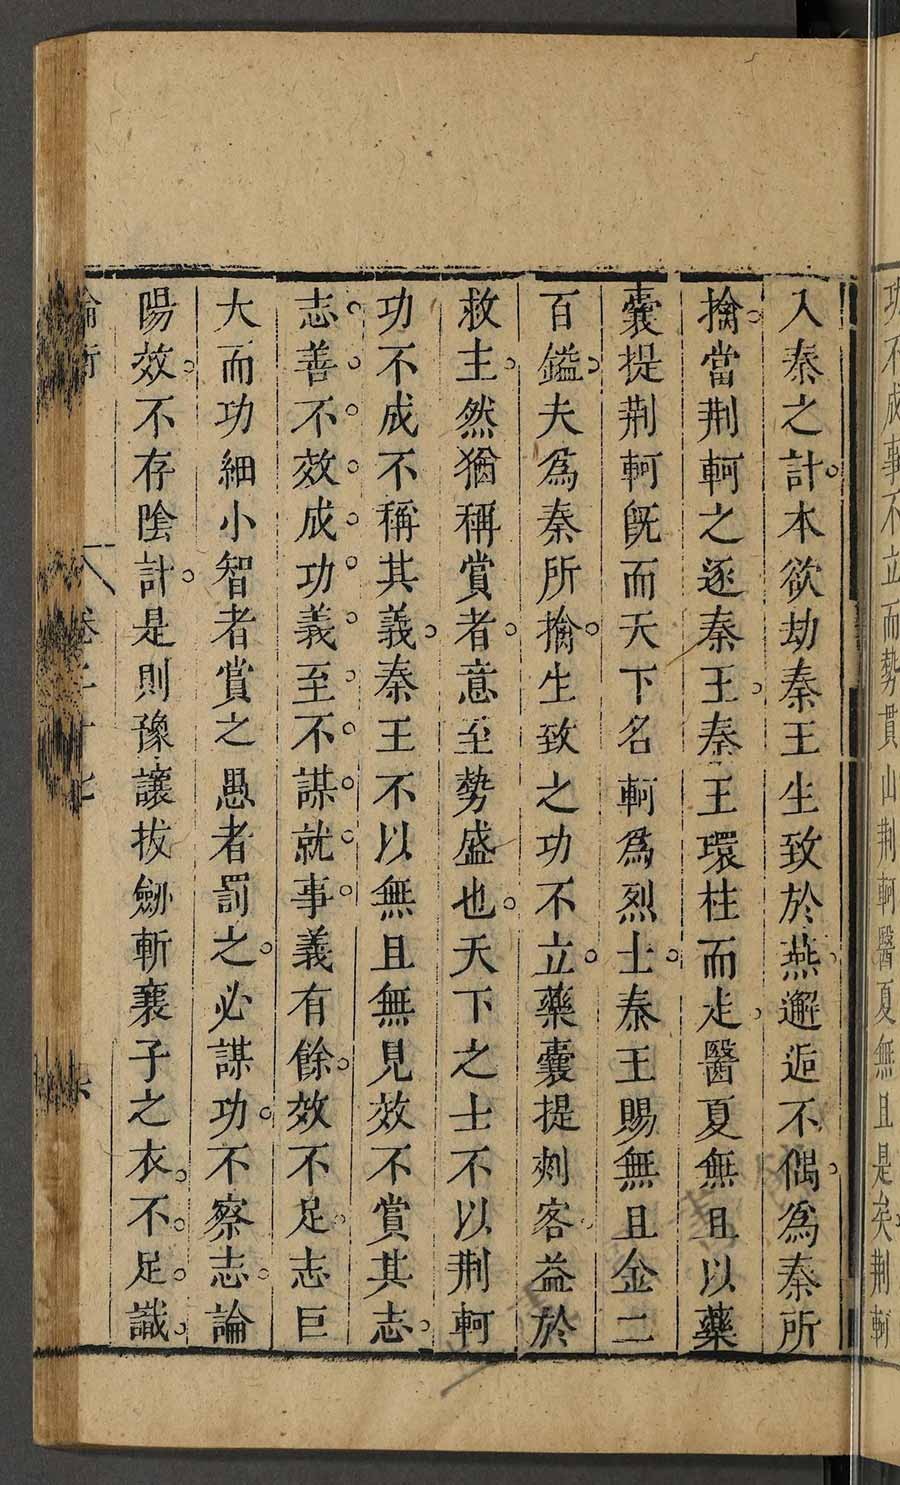 功不成事不立而勢貫山荆軻醫夏無且是矣荆軻
入秦之計本欲劫秦王生致於燕邂逅不偶爲秦所
擒當荆軻之逐秦王秦王環柱而走醫夏無且以藥
囊提荆軻既而天下名軻爲烈士秦王賜無且金二
百鎰夫爲秦所擒生致之功不立藥囊提刺客益於
救主然猶稱賞者意至勢盛也天下之士不以荆軻
功不成不稱其義秦王不以無且無見效不賞其志
志善不效成功義至不謀就事義有餘效不足志巨
大而功細小智者賞之愚者罰之必謀功不察志論
陽效不存陰計是則豫讓拔劒斬襄子之衣不足識
論衡 卷二十七